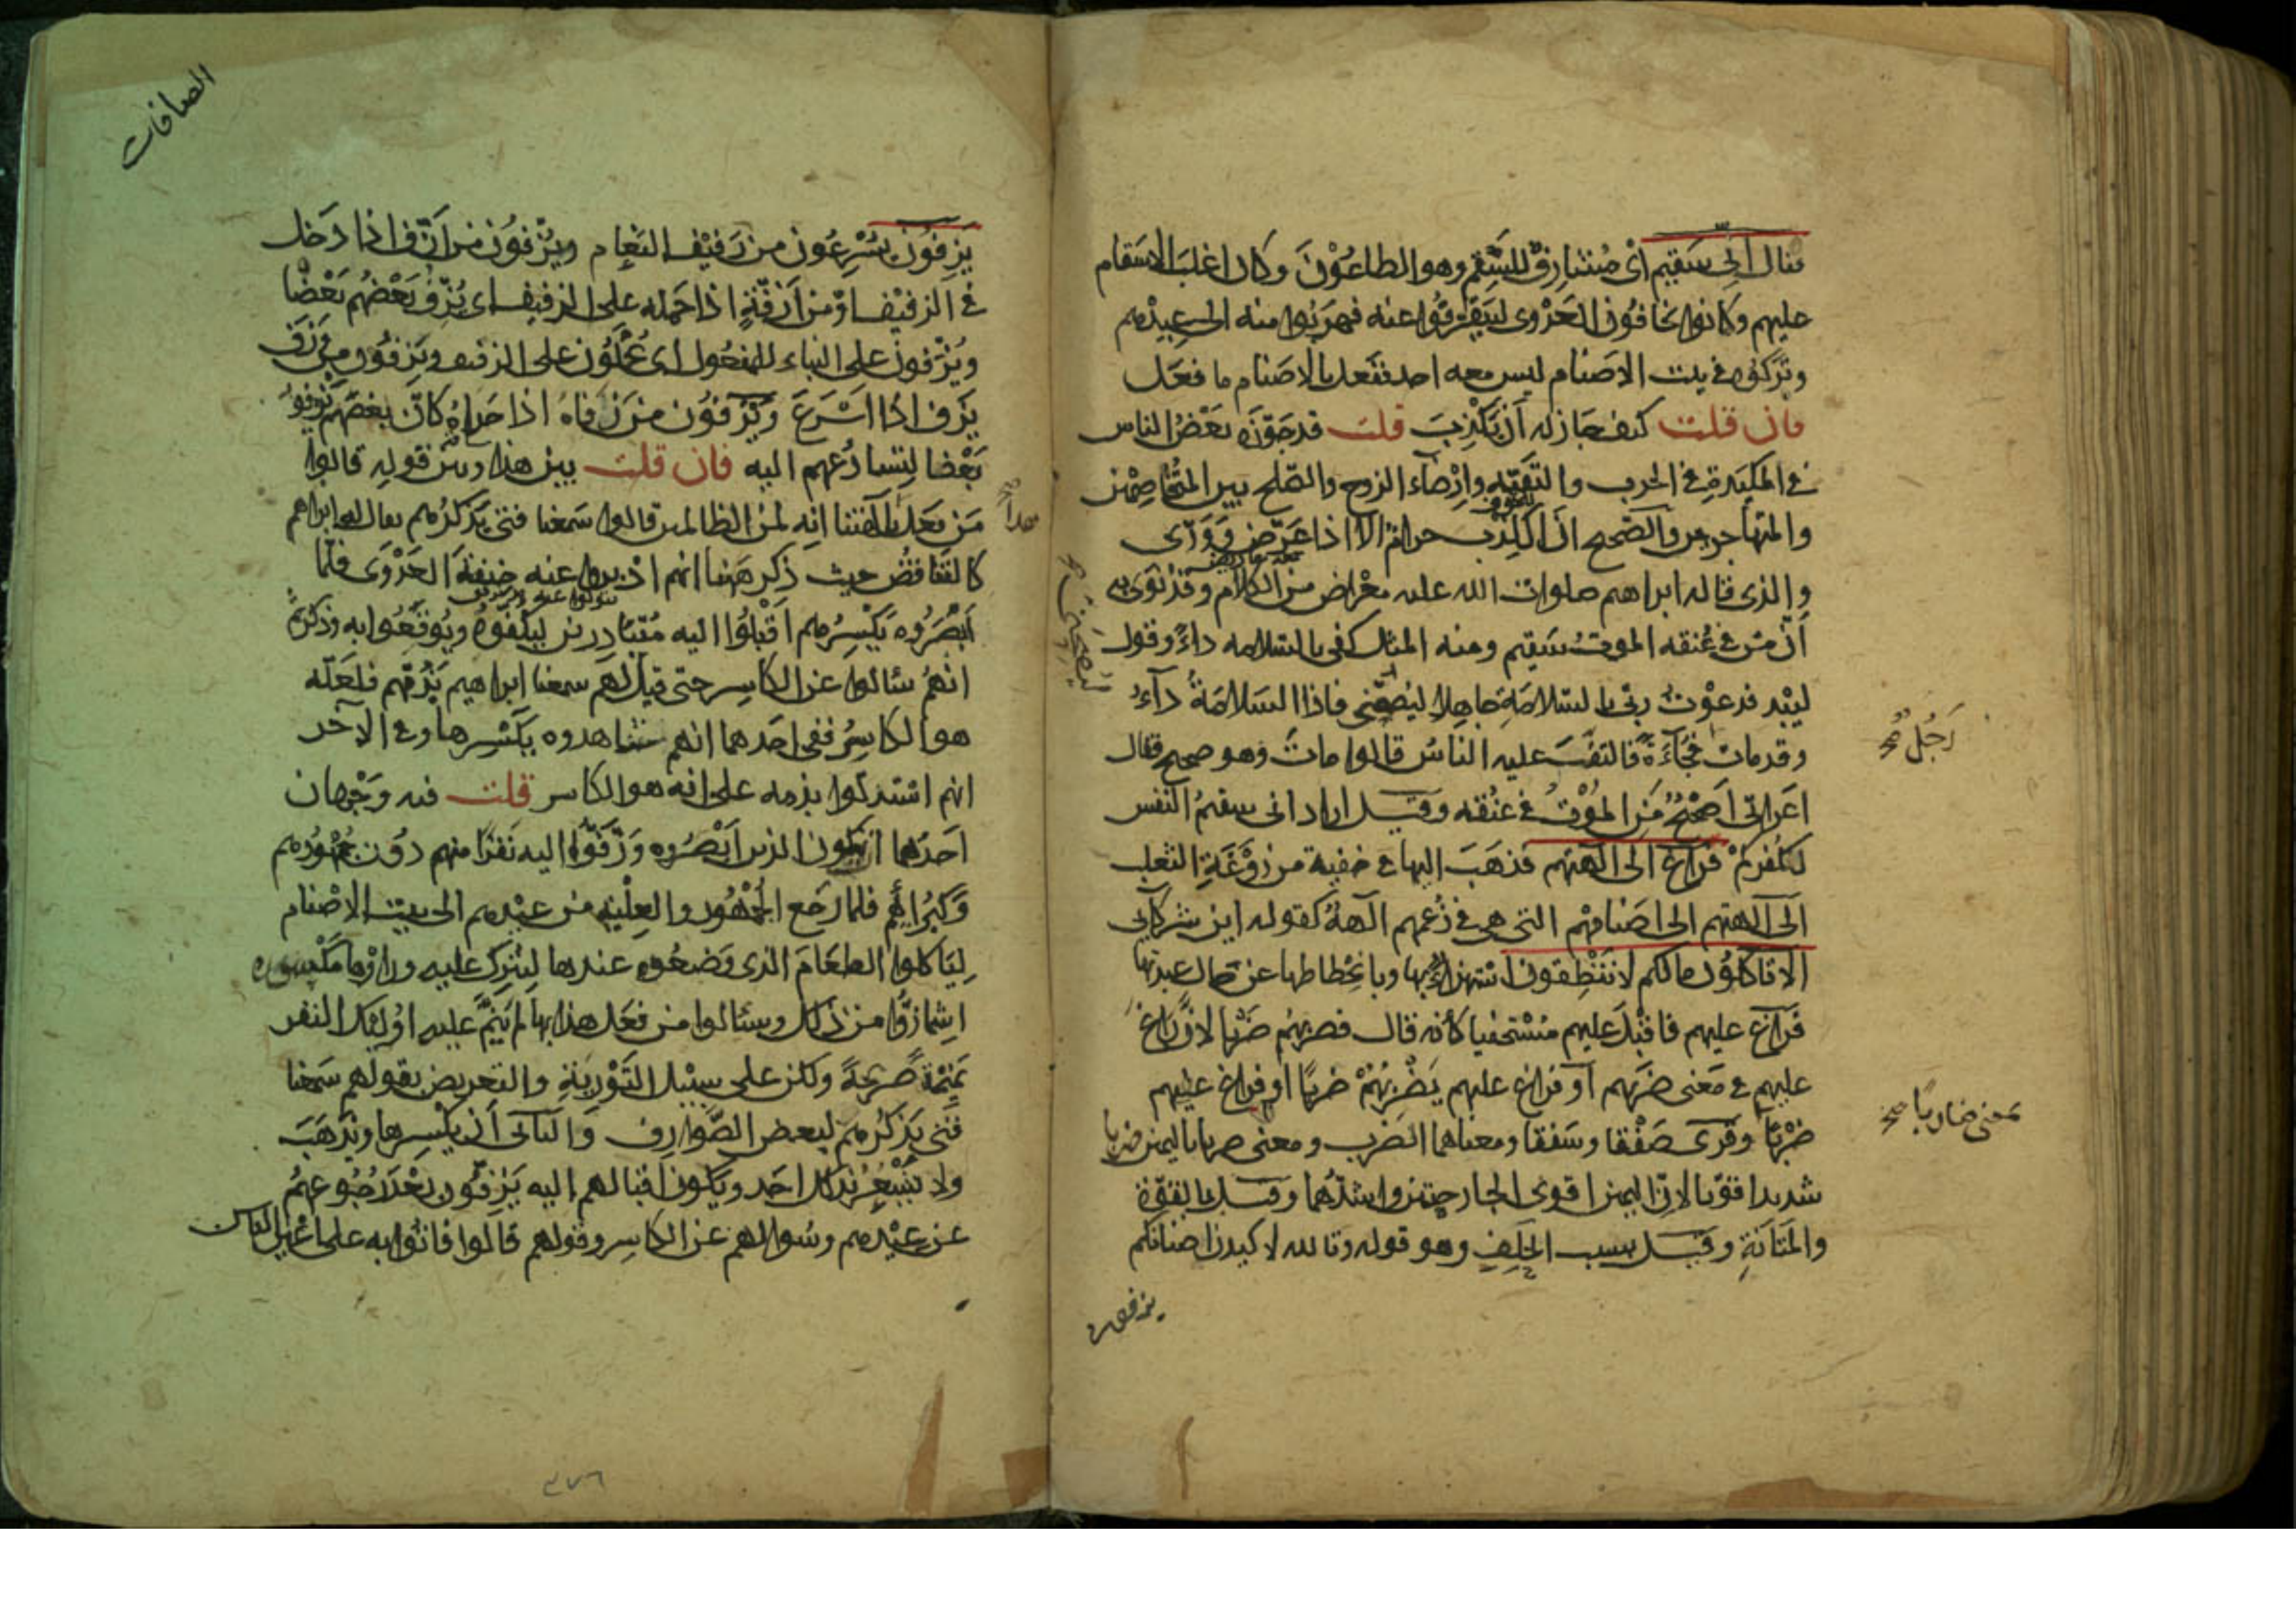 فقال انى سقيم اى مُشارفٌ للسَّقَم وهو الطاعُوْن وَكان اغلبَ الاسَقام
عليهم وكانوا يخافُون العَدْوى ليتفرقُوا عنه فهرَبُوا منه الى عِيدهم
وترَكوُه فى بيت الاصَنام ليس معه احد ففَعل بالاصَنام ما فعَل
فان قلت كيف جَاز له اَن يَكْذِبَ قلت قد جَوّزه بَعْضُ الناس
فى المكيَدةِ فى الحرب والتقيّة وارْضاء الزوج والصّلح بين المتُخاصِمْين
والمتهاجرين والصّحيح انّ الكذِب حرام الا اذا عَرّض وَوَرّى
والذى قاله ابراهيم صلوات الله عليه معْراض من الكلام وقد نَوَى به
اَنّ مَن فى عُنقه الموت سَقيم ومنه المثل كفى بالسّلامه داءً وقول
لبيْد فدعوْت ربّى بالسّلامَةِ جاهدا ليُصِحّنى فاذا السَلامَةُ دآءُ
رَجُل صح
وقد مات فُجآءَةً فالتفّتَ عليه الناسُ قالوا ماتَ وهو صحيح فقال
اعَرابىّ اَصَحيحٌ مَنِ الموْتُ فى عنُقه وقيل اراد انى سقيمُ النفس
لكُفركمْ فراغَ الى الهتهم فذهَبَ اليها فى خفية من رَوْغَةِ الثعلب
الى الهتهم الى اصَنامهْم التى هى فى زُعمهم الهةٌ كقوله اين شركآئى
الا تاكلُون مالكم لا تنْطِقون استهزاءٌ بها وبانحْطاطها عن حَال عبدتها
فَراغ عليهم فاقبْلَ عليهم مسْتخفيا كانه قال فضربهُم ضَرْبا لان راغَ
عليهم فى مَعنى ضرَبَهم او فراغ عليهم يَضْربُهُمْ ضربًا او فراغ عليهم
معنى ضاربًا صح
ضرْبًا وقرى صَفْقا وسَفقا ومعناهما الضرب ومعنى ضربا باليمين ضربا
شديدا قويّا لانّ اليمين اقوى الجارحتين واشدّهُما وقيل بالقوّة
والمَتانَةِ وقيْل بسبب الحَلِفِ وهو قوله وتالله لاكيدن اصنامكم
يزفون
الصافات
يَزِفوُن يسُرْعُون من زَفيْف النَعام ويُزفوُن من اَزَفّ اذا دَخل
فى الزفيْف او من اَزفّهُ اذا حَمله على الزفيف اى يُزِفّ بعْضهُم بَعْضًا
ويُزَفّون على البناء للمفعُول اى يُحْمَلُون على الزفيف ويَزِفُون من وزَفَ
يَزف اذا اسْرَعَ وَيَزْفوُن من زفاهُ اذا حَداهُ كانّ بعضَهم يَزفو
بَعْضا لِتسارُعهم اليه فان قلت بين هذا وبين قوله قالوا
مَن فعَل هذا بآلهتنا انه لمن الظالمين قالوا سَمعنا فتى يَذكرُهم يقال له ابراهيم
كالتناقُض حيث ذكر هَهُنا انهم ادْبروا عنه خيفةَ العَدْوَى فلمّا
اَبْصَرُوه يَكسِرُهم اقبْلوُا اليه مُتَبادِرين ليَكفّوهُ ويُوقعُوا به وذكر ثمّ
انهمُ سئالوا عن الكاسِر حتى قيل لهم سمعنا ابراهيم يَذمّهم فلعَله
هو الكاسِرُ ففى احَدهما انهم شاهدوه يكسْرها وفى الآخر
انهم استدلوا بذمه على انه هو الكاسر قلت فيه وَجْهان
احَدهما ان يكون الذين ابَصْرُوه وزفّوا اليه نفرًا منهم دُون جُمهُورهم
وَكُبرَائهم فلما رَجع الجمْهُور والعِلْية من عيْدهم الى بيت الاصْنام
لِيَاكلوا الطعَامَ الذى وضَعُوه عندها لتُبَرِّك عليه وراوْها مكسورة
اشمازُّوا من ذلك وسئالوا من فعَل هذا بها لم يَنمّ عليه اوُليك النفر
نَميْمة صَريحَةً ولكن على سبيْل التَوْريَةِ والتعريض بقولهم سَمعنا
فتى يذكرُهمْ لبعض الصّوارِف وَالثانى اَن يكسرها ويذهَبَ
ولا يُشعِر بذلك احَد ويَكون اقبالهم اليه يَزفون بَعْد رُجُوعهمْ
عن عيْدهم وسُوالهم عن الكاسِر وقولهم قالوا فاتوُا به على اعْيُن الناس
٣٧٦